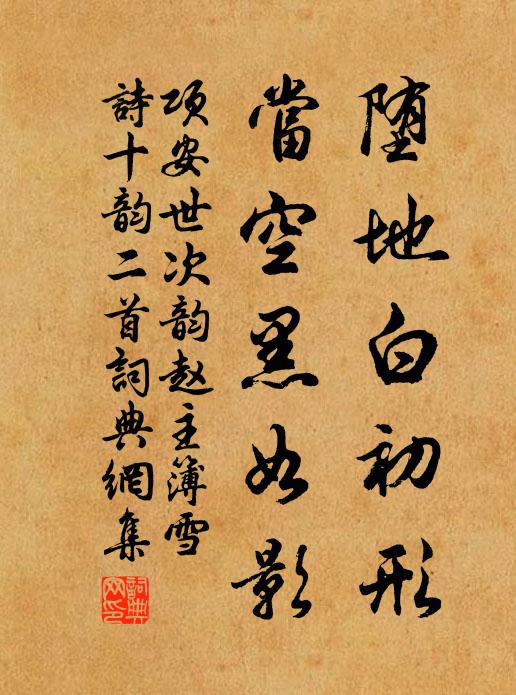 堕地白初形
當空黑如影
项安世次韵赵主簿雪
詩十韵二首詞典網集
詞典網印